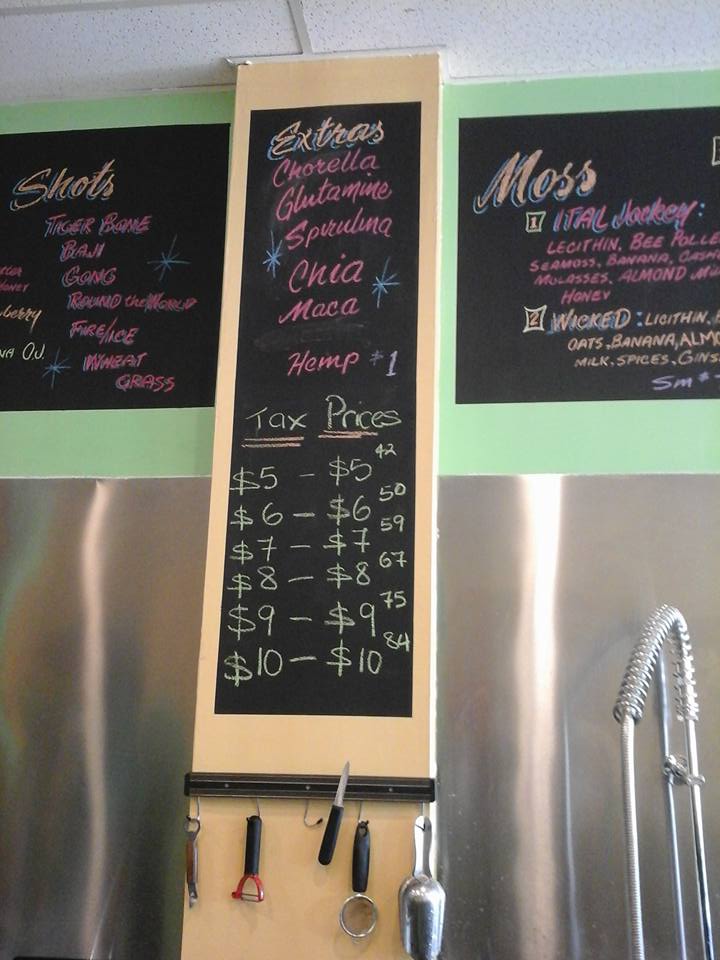 Shots
TIGER BONE
BAJI
GONG
ROUND the WORLD
FIRE/ICE
WHEAT
GRASS
O.J.
Extras
Chorella
Glutamine
Spirulina
Chia
Maca
Hemp $1
Tax Prices
$5 - $5 42
$6 - $6 50
$7 - $7 59
$8 - $8 67
$9 - $9 75
$10 - $10 84
Moss
1 ITAL Jockey:
LECITHIN, BEE POLLE
SEAMOSS, BANANA, CASH
MOLASSES, ALMOND MI
HONEY
2 WICKED: LICITHIN,
OATS, BANANA, ALMO
MILK, SPICES, GINS
Sm $